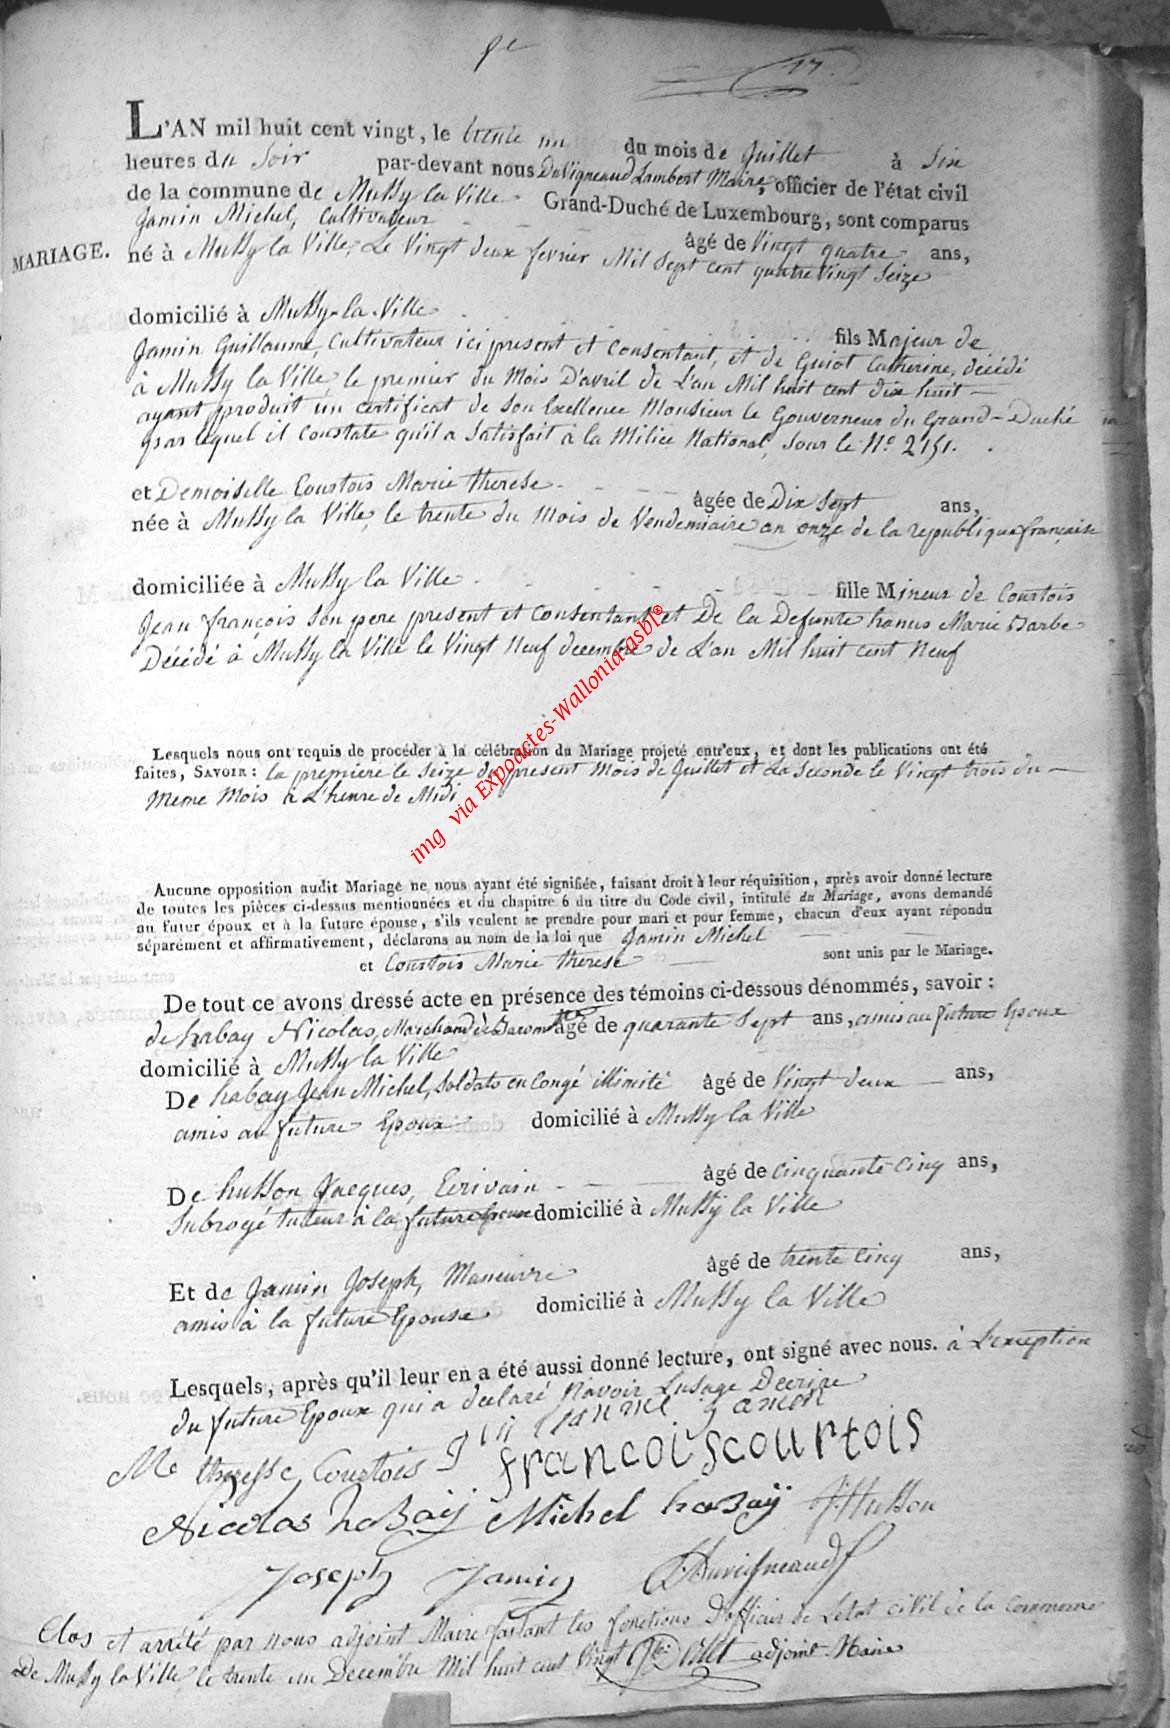 9e
17.
L'AN mil huit cent vingt, le trente un du mois de Juillet à Six
heures du Soir par-devant nous DuVigneaud Lambert Maire, officier de l'état civil
de la commune de Mussy la Ville Grand-Duché de Luxembourg, sont comparus
Jamin Michel, Cultivateur âgé de Vingt quatre ans,
MARIAGE.
né à Mussy la Ville, Le Vingt deux fevrier Mil Sept cent quatre Vingt Seize
domicilié à Mussy-la-Ville fils Majeur de
Jamin Guillaume, Cultivateur ici present et Consentant, et de Guiot Catherine, décédé
à Mussy la Ville, le premier du Mois D'avril de L'an Mil huit cent dix huit
ayant produit un certificat de Son Exellence Monsieur le Gouverneur du Grand-Duché
par lequel il Constate qu'il a Satisfait à la Milice National, Sous le No. 2151.
et Demoiselle Courtois Marie therese âgée de Dix Sept ans,
née à Mussy la Ville, le trente du Mois de Vendemiaire an onze de la republique française
domiciliée à Mussy la Ville fille Mineur de Courtois
Jean françois Son pere present et Consentant et De la Defunte hanus Marie Barbe
Décédé à Mussy la Ville le Vingt Neuf decembre de L'an Mil huit cent Neuf
img via Expoactes-Wallonia-asbl®
Lesquels nous ont requis de procéder à la célébration du Mariage projeté entr'eux, et dont les publications ont été
faites, SAVOIR : la premiere le Seize du present Mois de Juillet et La Seconde le Vingt trois du
Meme Mois à L'heure de Midi
Aucune opposition audit Mariage ne nous ayant été signifiée, faisant droit à leur réquisition, après avoir donné lecture
de toutes les pièces ci-dessus mentionnées et du chapitre 6 du titre du Code civil, intitulé du Mariage, avons demandé
au futur époux et à la future épouse, s'ils veulent se prendre pour mari et pour femme, chacun d'eux ayant répondu
séparément et affirmativement, déclarons au nom de la loi que Jamin Michel
et Courtois Marie therese sont unis par le Mariage.
De tout ce avons dressé acte en présence des témoins ci-dessous dénommés, savoir :
de habay Nicolas, Marchand âgé de quarante Sept ans, amis au future Epoux
domicilié à Mussy la Ville
De habay Jean Michel, Soldats en Congé illimité âgé de Vingt deux ans,
amis au future Epoux domicilié à Mussy la Ville
De husson Jacques, Ecrivain âgé de Cinquante-Cinq ans,
Subrogé tuteur à la future Epouse domicilié à Mussy la Ville
Et de Jamin Joseph, Maneuvre âgé de trente Cinq ans,
amis à la future Epouse domicilié à Mussy la Ville
Lesquels, après qu'il leur en a été aussi donné lecture, ont signé avec nous. à L'exception
du future Epoux qui a declaré N'avoir L'usage Decrire
Me theresse Courtois
francois courtois
Nicolas habaÿ Michel habaÿ J Husson
Joseph Jamin Duvigneaud
Clos et arrêté par nous adjoint Maire faisant les fonctions D'officier de L'etat civil de la Commune
De Mussy la Ville, le trente un Decembre Mil huit cent Vingt adjoint-Maire